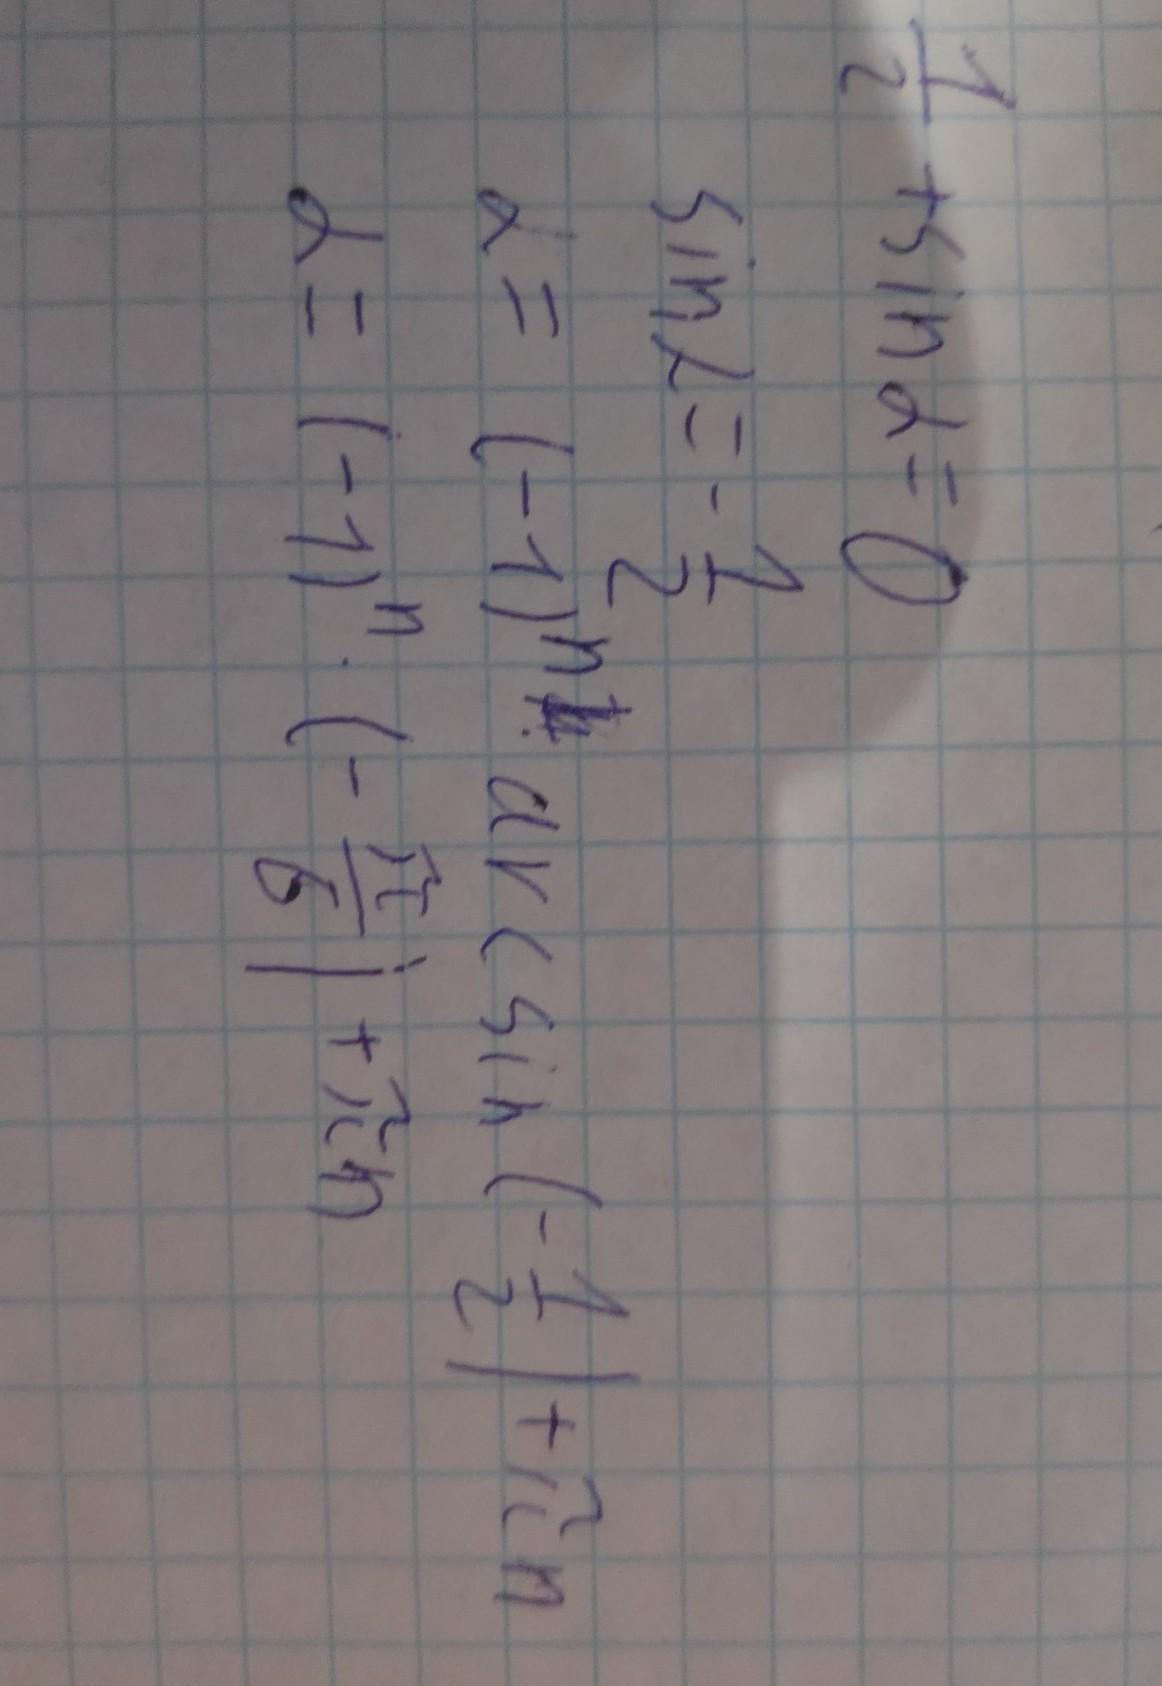 1/2 + sin α = 0
sin α = - 1/2
α = (-1)ⁿ · arcsin (- 1/2) + πn
α = (-1)ⁿ · (- π/6) + πn